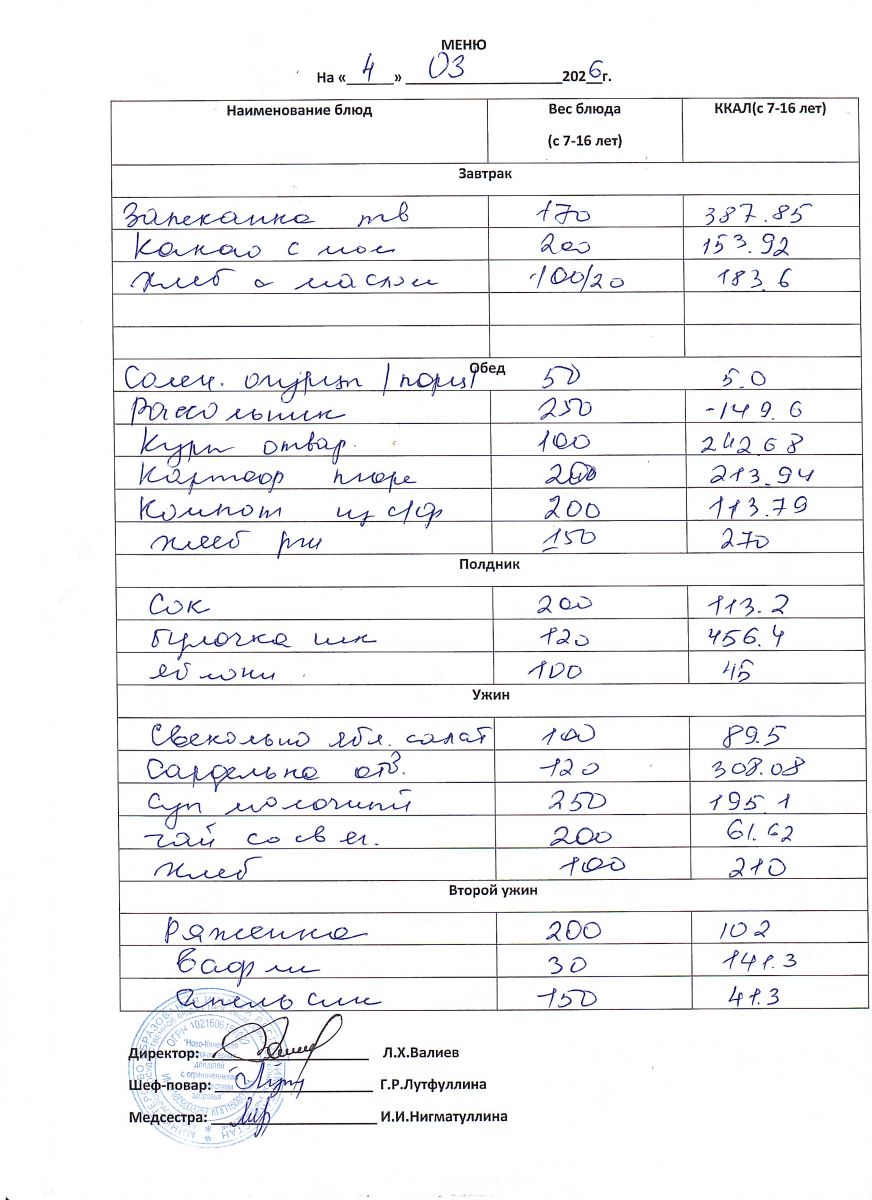 МЕНЮ
На « 4 » 03 2026г.
Наименование блюд Вес блюда (с 7-16 лет) ККАЛ(с 7-16 лет)
Завтрак
Запеканка тв 170 387.85
Какао с мол 200 153.92
Хлеб с маслом 100/20 183.6
Обед
Солен. огурцы /порц/ 50 5.0
Рассольник 250 -149.6
Куры отвар. 100 242.68
Картоф пюре 200 213.94
Компот из с/ф 200 113.79
Хлеб рж 150 270
Полдник
Сок 200 113.2
Булочка шк 120 456.4
Яблоки 100 45
Ужин
Свекольно ябл. салат 100 89.5
Сарделька отв. 120 308.08
Суп молочный 250 195.1
Чай со св ег. 200 61.62
Хлеб 100 210
Второй ужин
Ряженка 200 102
Вафли 30 141.3
Апельсин 150 41.3
Директор: Л.Х.Валиев
Шеф-повар: Г.Р.Лутфуллина
Медсестра: И.И.Нигматуллина